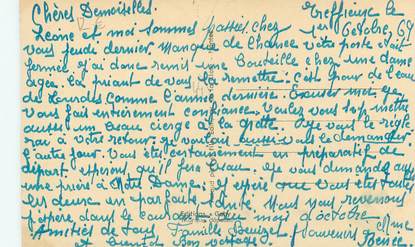 Chères Demoiselles. Treffieux le
Leone et moi sommes passées chez 1er Octobre 67
vous jeudi dernier. Manque de chance votre porte était
fermée. J'ai donc remis une bouteille chez une dame
agée. La priant de vous la remettre. C'est pour de l'eau
de Lourdes comme l'année dernière. Excuser moi, je
vous fais entièrement confiance. Voulez vous s.v.p. mettre
aussi un beau cierge à la grotte. Je vous le règle
rai à votre retour. Je voulais aussi vous le demander
l'autre jour. Vous êtes certainement en préparatif de
départ. espérons qu'il fera beau. Je vous demande aussi
une prière à Notre Dame. J'espère que vous êtes toutes
les deux en parfaite santé. Nous vous reverrons
j'espère dans le courant du mois d'octobre.
Amitiés de tous Famille Souvenirs
et Bon voyage